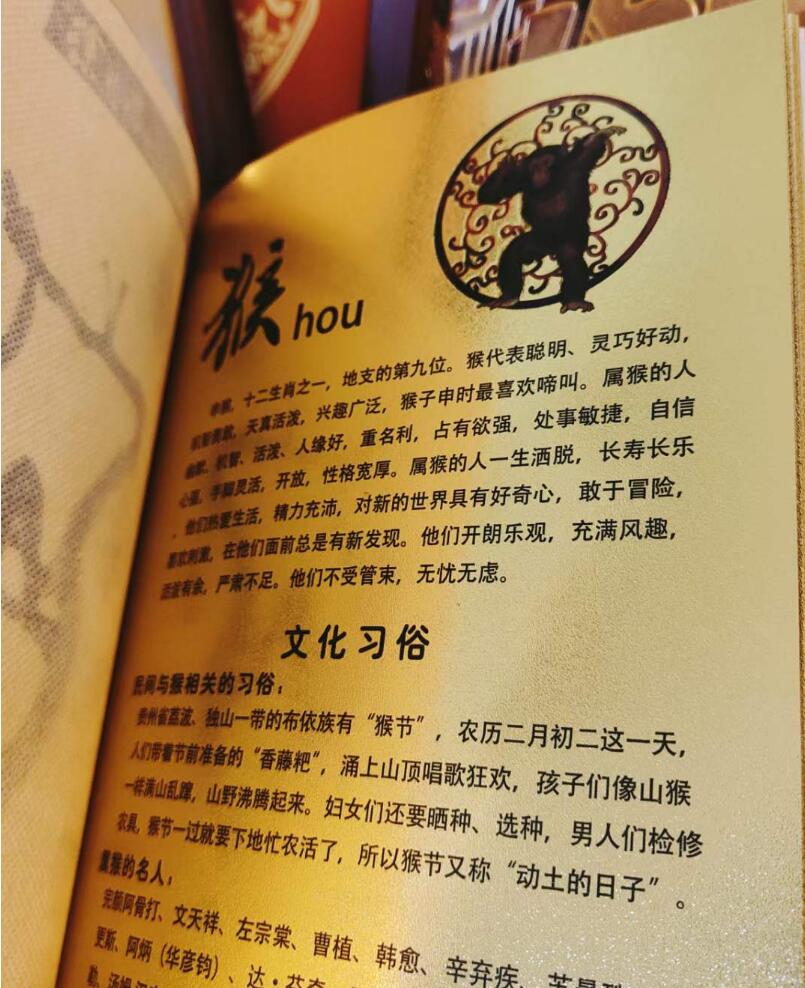 猴 hou
申猴，十二生肖之一，地支的第九位。猴代表聪明、灵巧好动，
机智勇敢，天真活泼，兴趣广泛，猴子申时最喜欢啼叫。属猴的人
幽默、机智、活泼、人缘好，重名利，占有欲强，处事敏捷，自信
心强，手脚灵活，开放，性格宽厚。属猴的人一生洒脱，长寿长乐
，他们热爱生活，精力充沛，对新的世界具有好奇心，敢于冒险，
喜欢刺激，在他们面前总是有新发现。他们开朗乐观，充满风趣，
活泼有余，严肃不足。他们不受管束，无忧无虑。
文化习俗
民间与猴相关的习俗：
贵州省荔波、独山一带的布依族有“猴节”，农历二月初二这一天，
人们带着节前准备的“香藤粑”，涌上山顶唱歌狂欢，孩子们像山猴
一样满山乱蹿，山野沸腾起来。妇女们还要晒种、选种，男人们检修
农具，猴节一过就要下地忙农活了，所以猴节又称“动土的日子”。
属猴的名人：
完颜阿骨打、文天祥、左宗棠、曹植、韩愈、辛弃疾、
更斯、阿炳（华彦钧）、达·芬奇
勒、汤姆